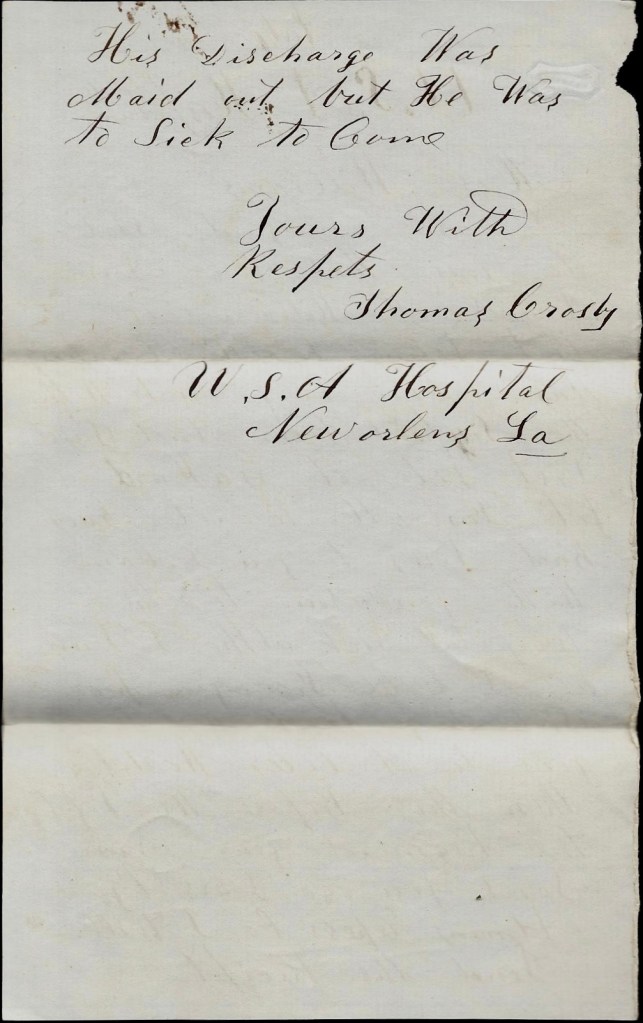 His Discharge Was
Maid out but He Was
to Sick to Come
Yours With
Respets
Thomas Crosby
U.S.A Hospital
Neworlens La